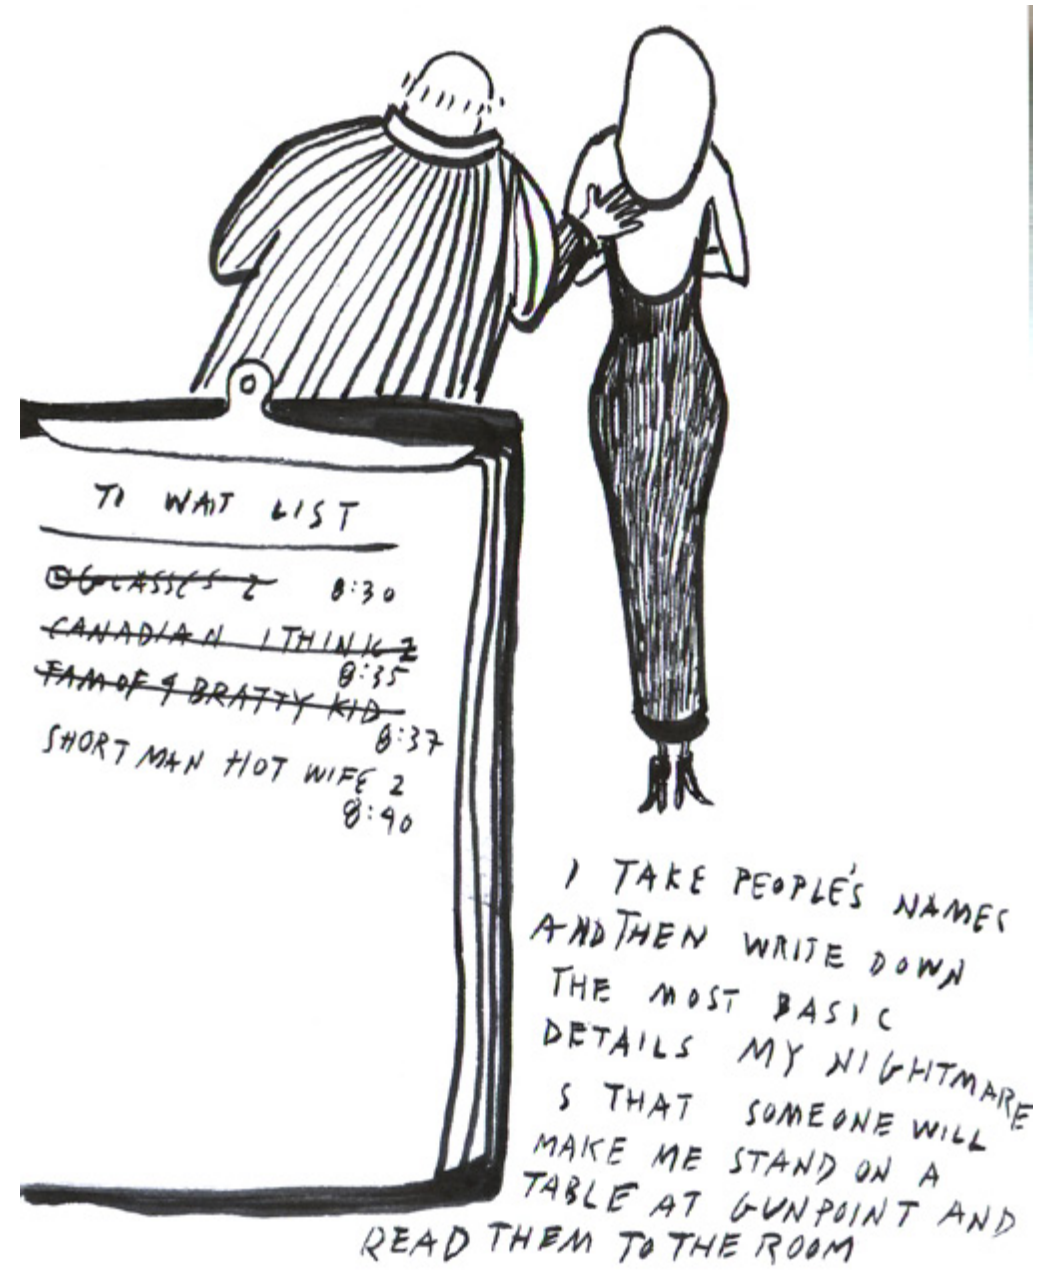 TI WAIT LIST
GLASSES 2 8:30
CANADIAN I THINK 2
8:35
FAM OF 4 BRATTY KID
8:37
SHORT MAN HOT WIFE 2
8:40
I TAKE PEOPLE'S NAMES
AND THEN WRITE DOWN
THE MOST BASIC
DETAILS MY NIGHTMARE
S THAT SOMEONE WILL
MAKE ME STAND ON A
TABLE AT GUNPOINT AND
READ THEM TO THE ROOM